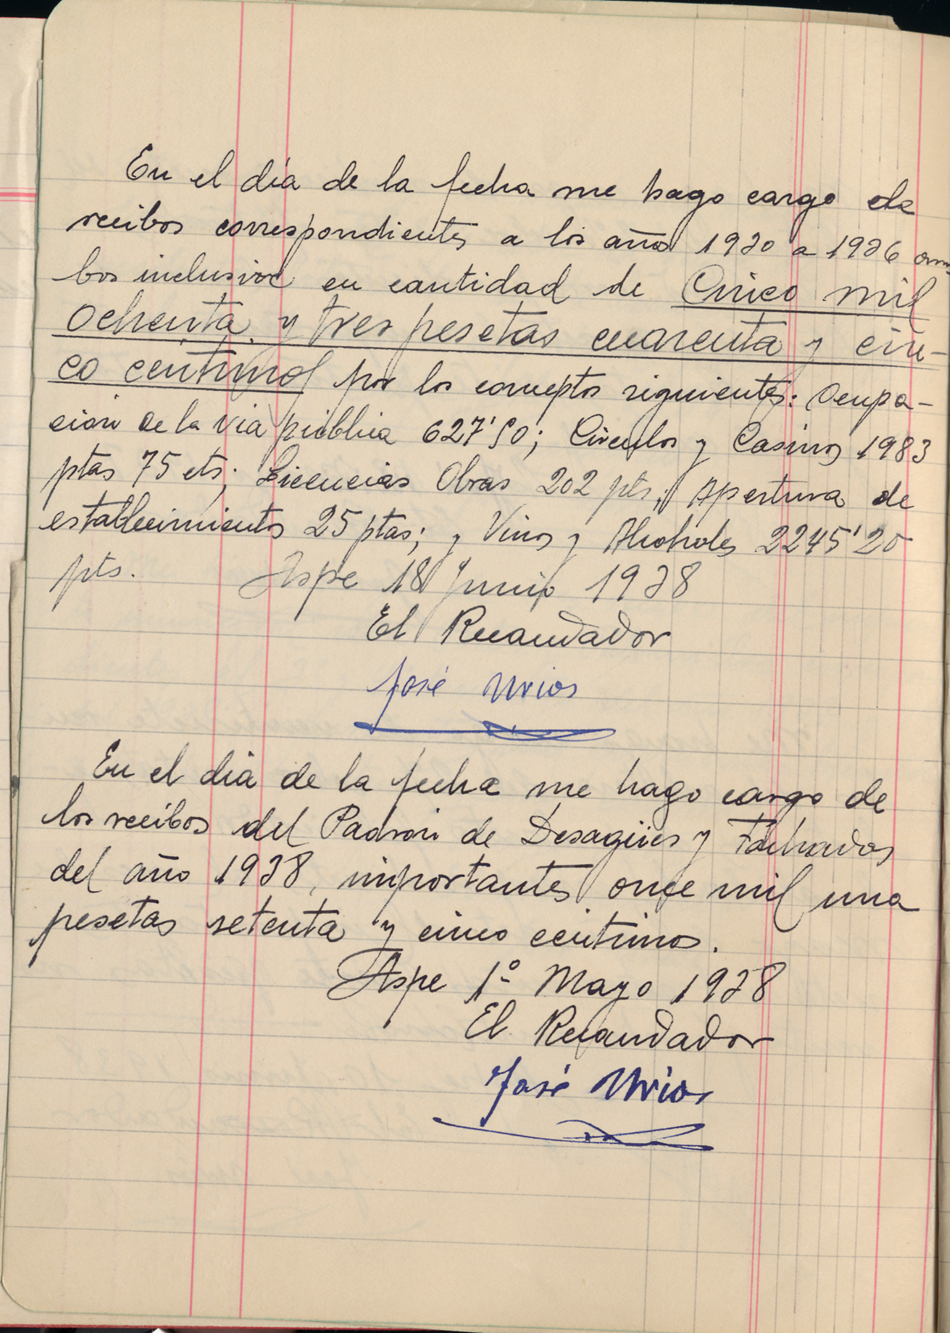 En el día de la fecha me hago cargo de
recibos correspondientes a los años 1930 a 1936 am-
bos inclusive en cantidad de Cinco mil
ochenta y tres pesetas cuarenta y cin-
co centimos por los conceptos siguientes: Ocupa-
ción de la via pública 627'50; Circulos y Casinos 1983
ptas 75 cts; Licencias Obras 202 pts, Apertura de
establecimientos 25 ptas; y Vinos y Alcoholes 2245'20
pts. Aspe 18 Junio 1938
El Recaudador
José Urios
En el dia de la fecha me hago cargo de
los recibos del Padron de Desagües y Fachadas
del año 1938, importantes once mil una
pesetas setenta y cinco centimos.
Aspe 1º Mayo 1938
El Recaudador
José Urios